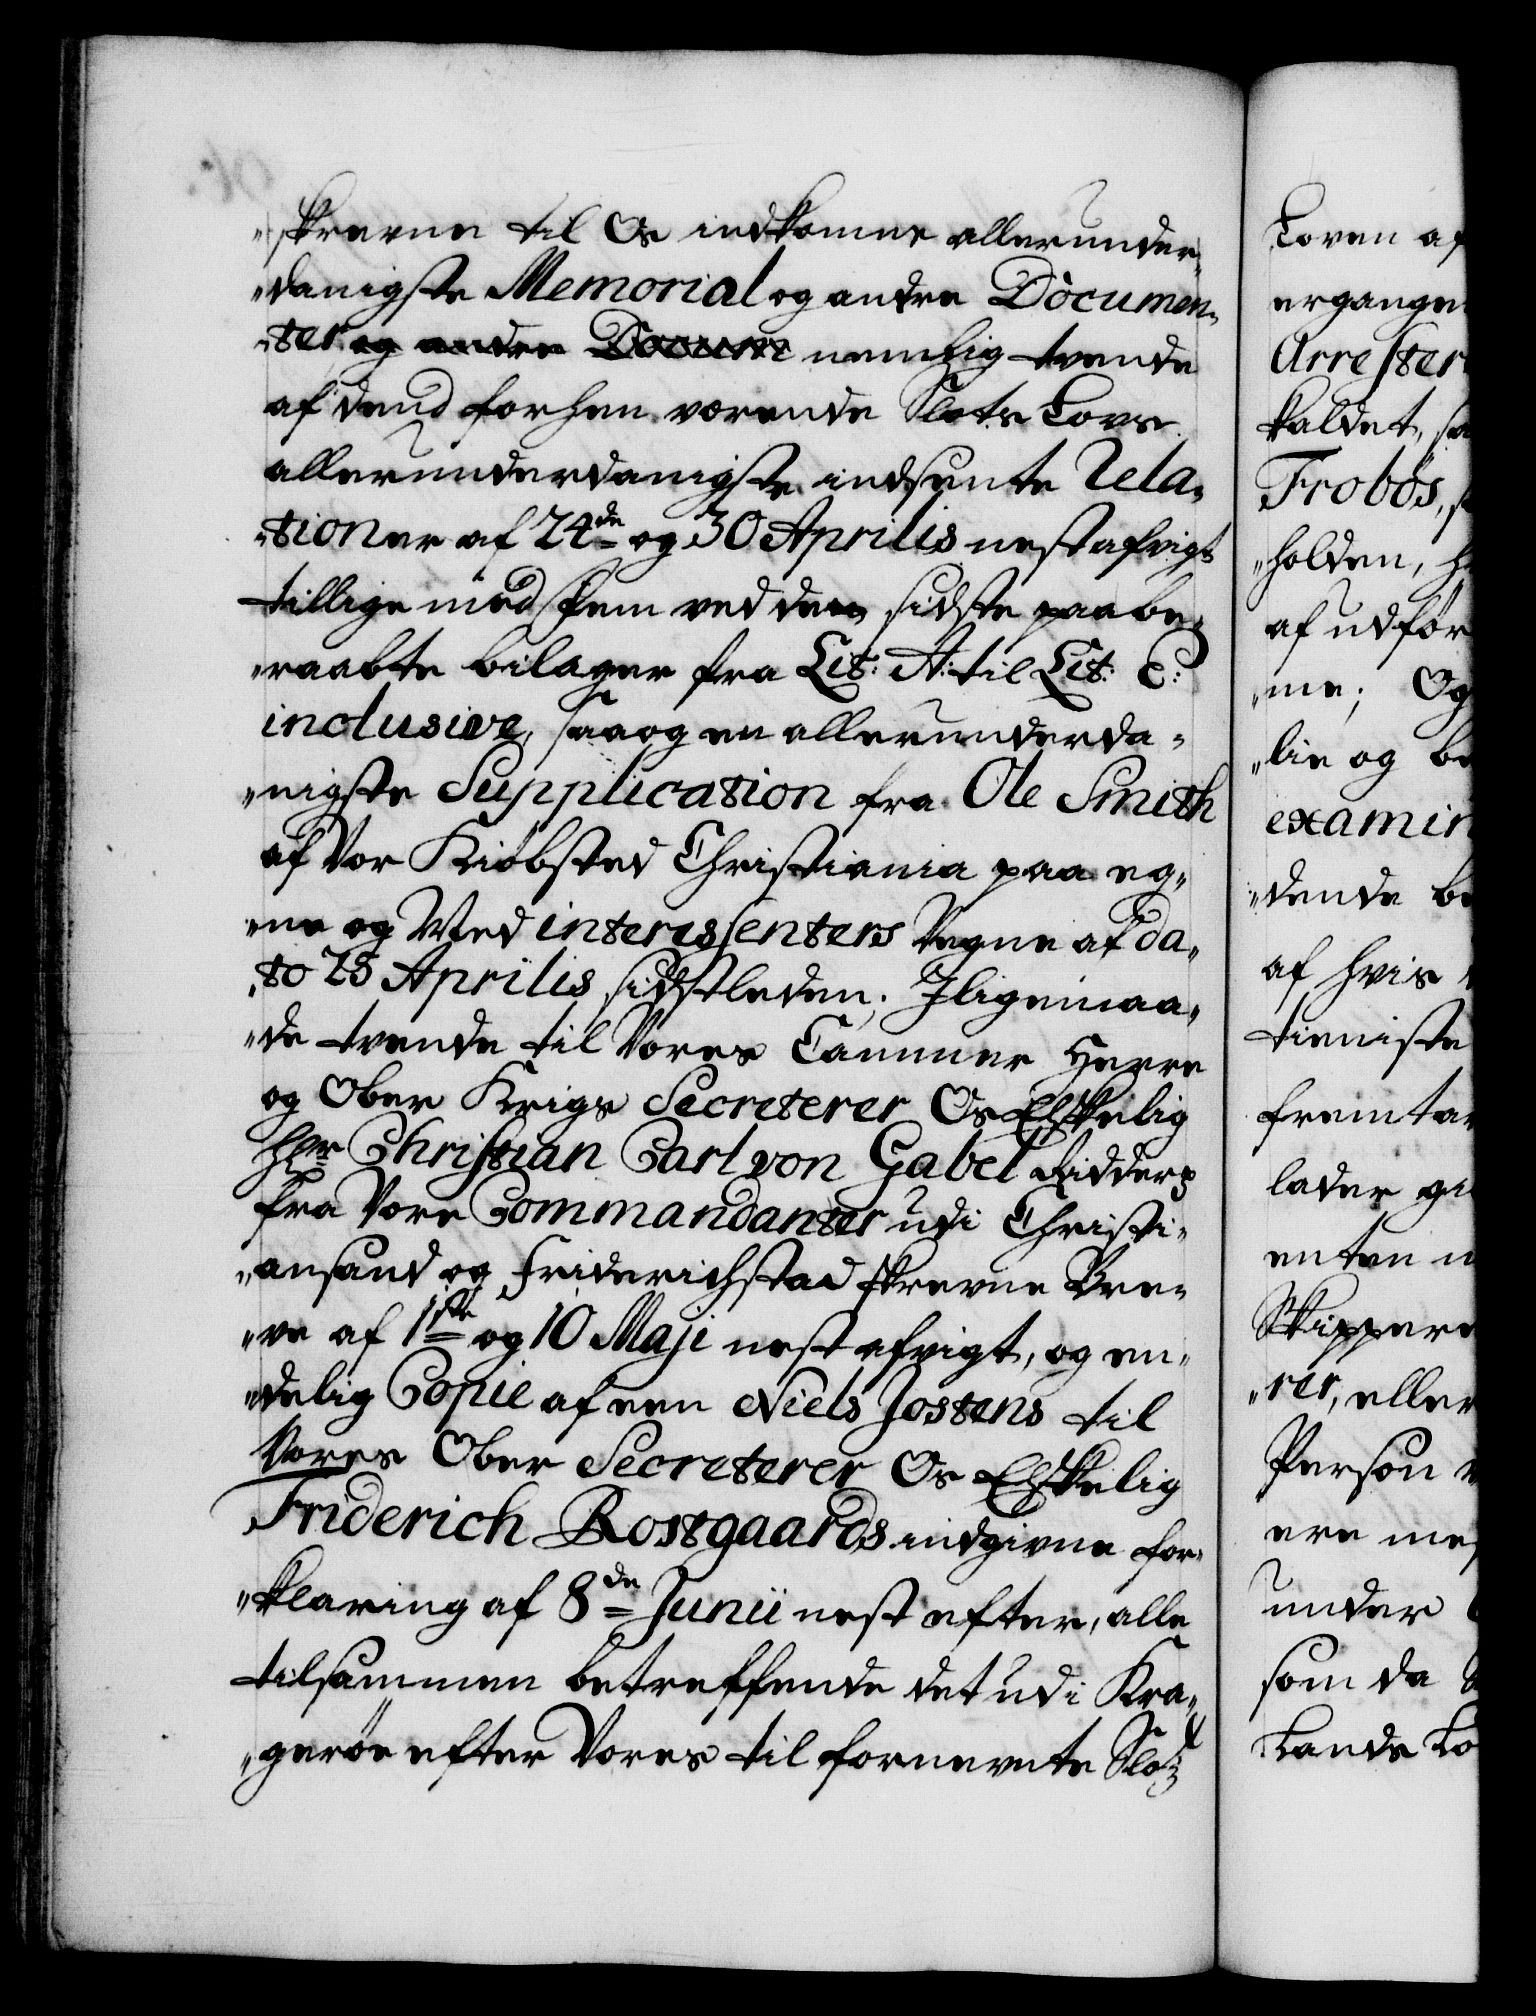 "skrevne til Os indkomne allerunder„
„danigste Memorial og andre Documen„
„ter og andre Docum nemlig tvende
af dend forhen værende Slots Lovs
allerunderdanigste indsente Rela„
„tioner af 24de og 30 Aprilis nest afvigt
tillige med fem ved den sidste paabe„
„raabte bilager fra Lit: A: til Lit: E:
inclusive, saa og en allerunderda„
„nigste Supplication fra Ole Smith
af Vor Kiöbsted Christiania paa eg„
„ne og Med interessenters Vegne af da„
„to 25 Aprilis sidstleden; Iligemaa„
„de tvende til Vores Cammer Herre
og Ober Krigs Secreterer Os Elskelig
Hr Christian Carl von Gabel Ridder
fra Vore Commandanter udi Christi„
„ansand og Friderichstad skrevne Bre„
„ve af 1ste og 10 Maji nest afvigt, og en„
„delig Copie af een Niels Jostens til
Vores Ober Secreterer Os Elskelig
Friderich Rostgaards indgivne for„
„klaring af 8de Junii nest efter, alle
tilsammen betreffende det udi Kra„
„geröe efter Vores til fornevnte Slotz
Loven af
ergange
Arrester
kaldet, sa
Frobös, s
„holden, h
af udför
„me; Og
„lie og be
examin
„dende be
af hvis
tieniste
fremta
lader gi
enten
Skipper
„rer, eller
Person
ere me
under
som da
Lands Lo